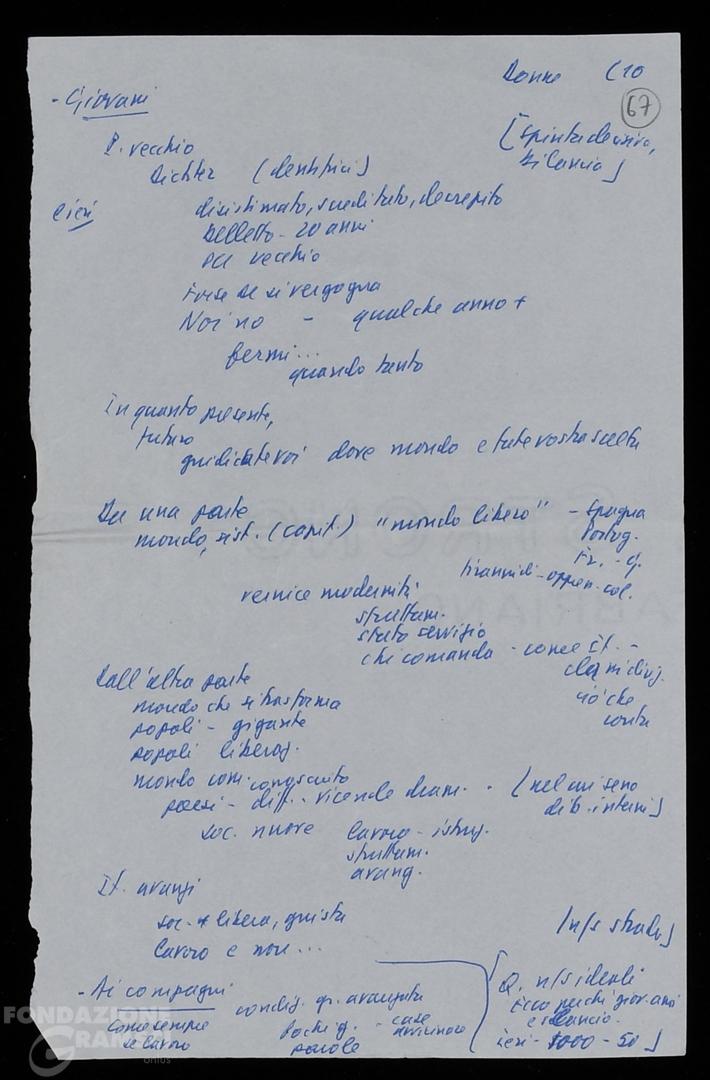 Donne (10
67
- Giovani
[spinta decisiva,
bilancia]
P. vecchio
Dichter (dentifrici)
Ieri
disistimato, screditato, decrepito
belletto - 20 anni
PCI vecchio
Forse se si vergogna
Noi no - qualche anno +
fermi...
quando tanto
In quanto presente,
futuro
giudicate voi dove mondo e fate vostra scelta
Da una parte
mondo, sist. (capit.) "mondo libero" - Spagna
Portog.
Fr. -
tirannidi - oppr. col.
vernice modernità
sfruttam.
stato servizio
chi comanda - come It. -
clan dirig.
ciò che
conta
Dall'altra parte
mondo che si trasforma
popoli - gigante
popoli liberaz.
mondo com. conosciuto
paesi - diff. vicende dram. - (nel cui seno
dib. interni]
soc. nuove lavoro - istruz.
sfruttam.
avanz.
It. avanzi
soc. + libera, giusta
lavoro e non...
[n/s strada]
- Ai compagni
condiz. gr. avanzata
Come sempre
se lavoro
pochi g. - case
parole
Q. n/s ideali
Ecco perché giovani
e slancio.
Ieri - 1000 - 50]
FONDAZIONE
GRAMSCI
onlus